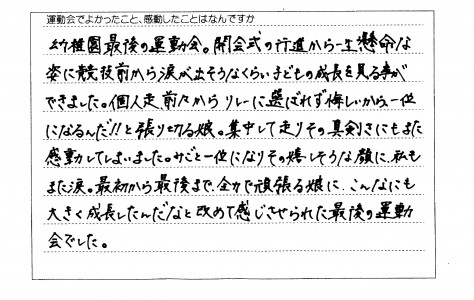 運動会でよかったこと、感動したことはなんですか
幼稚園最後の運動会。開会式の行進から一生懸命な
姿に競技前から涙が出そうなくらい子どもの成長を見る事が
できました。個人走前夕から リレーに選ばれず悔しいから一位
になるんだ!!と張り切る娘。集中して走りその真剣さにもまた
感動してしまいました。みごと一位になりその嬉しそうな顔に、私も
また涙。最初から最後まで、全力で頑張る娘に、こんなにも
大きく成長したんだなと改めて感じさせられた最後の運動
会でした。